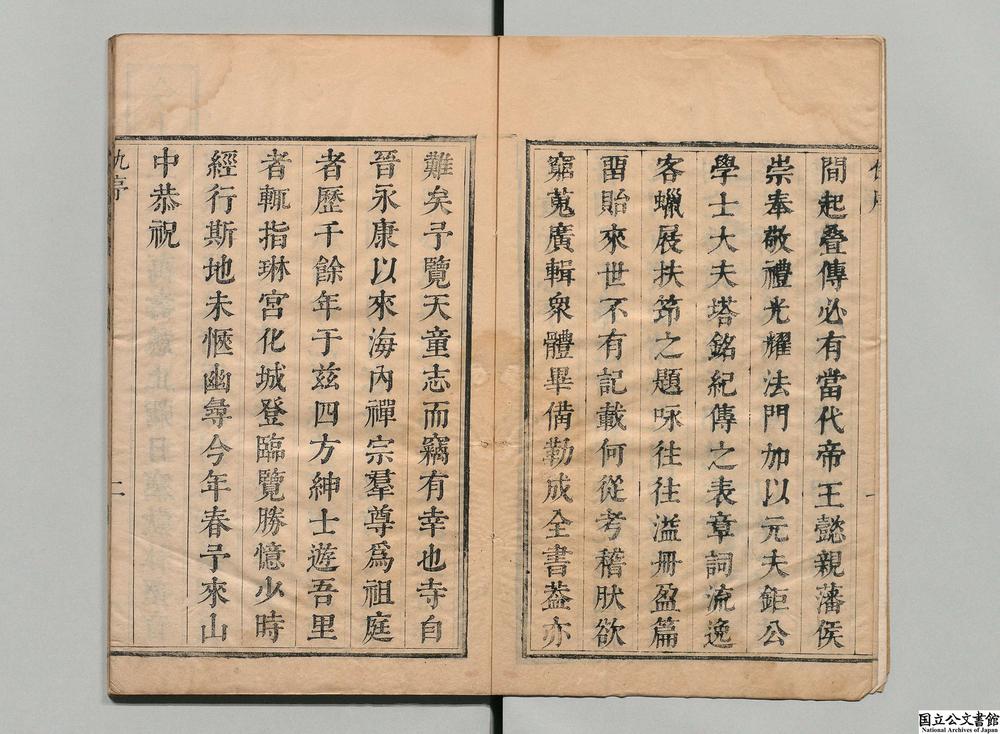 間起叠傳必有當代帝王懿親藩侯
崇奉敬禮光耀法門加以元夫鉅公
學士大夫塔銘紀傳之表章詞流逸
客蠟屐扶筇之題咏往往溢册盈篇
畱貽來世不有記載何從考稽肰欲
窮蒐廣輯衆體畢備勒成全書葢亦
難矣予覽天童志而竊有幸也寺自
晉永康以來海內禪宗羣尊爲祖庭
者歷千餘年于茲四方紳士遊吾里
者輒指琳宮化城登臨覽勝憶少時
經行斯地未愜幽尋今年春予來山
中恭祝
二
国立公文書館
National Archives of Japan